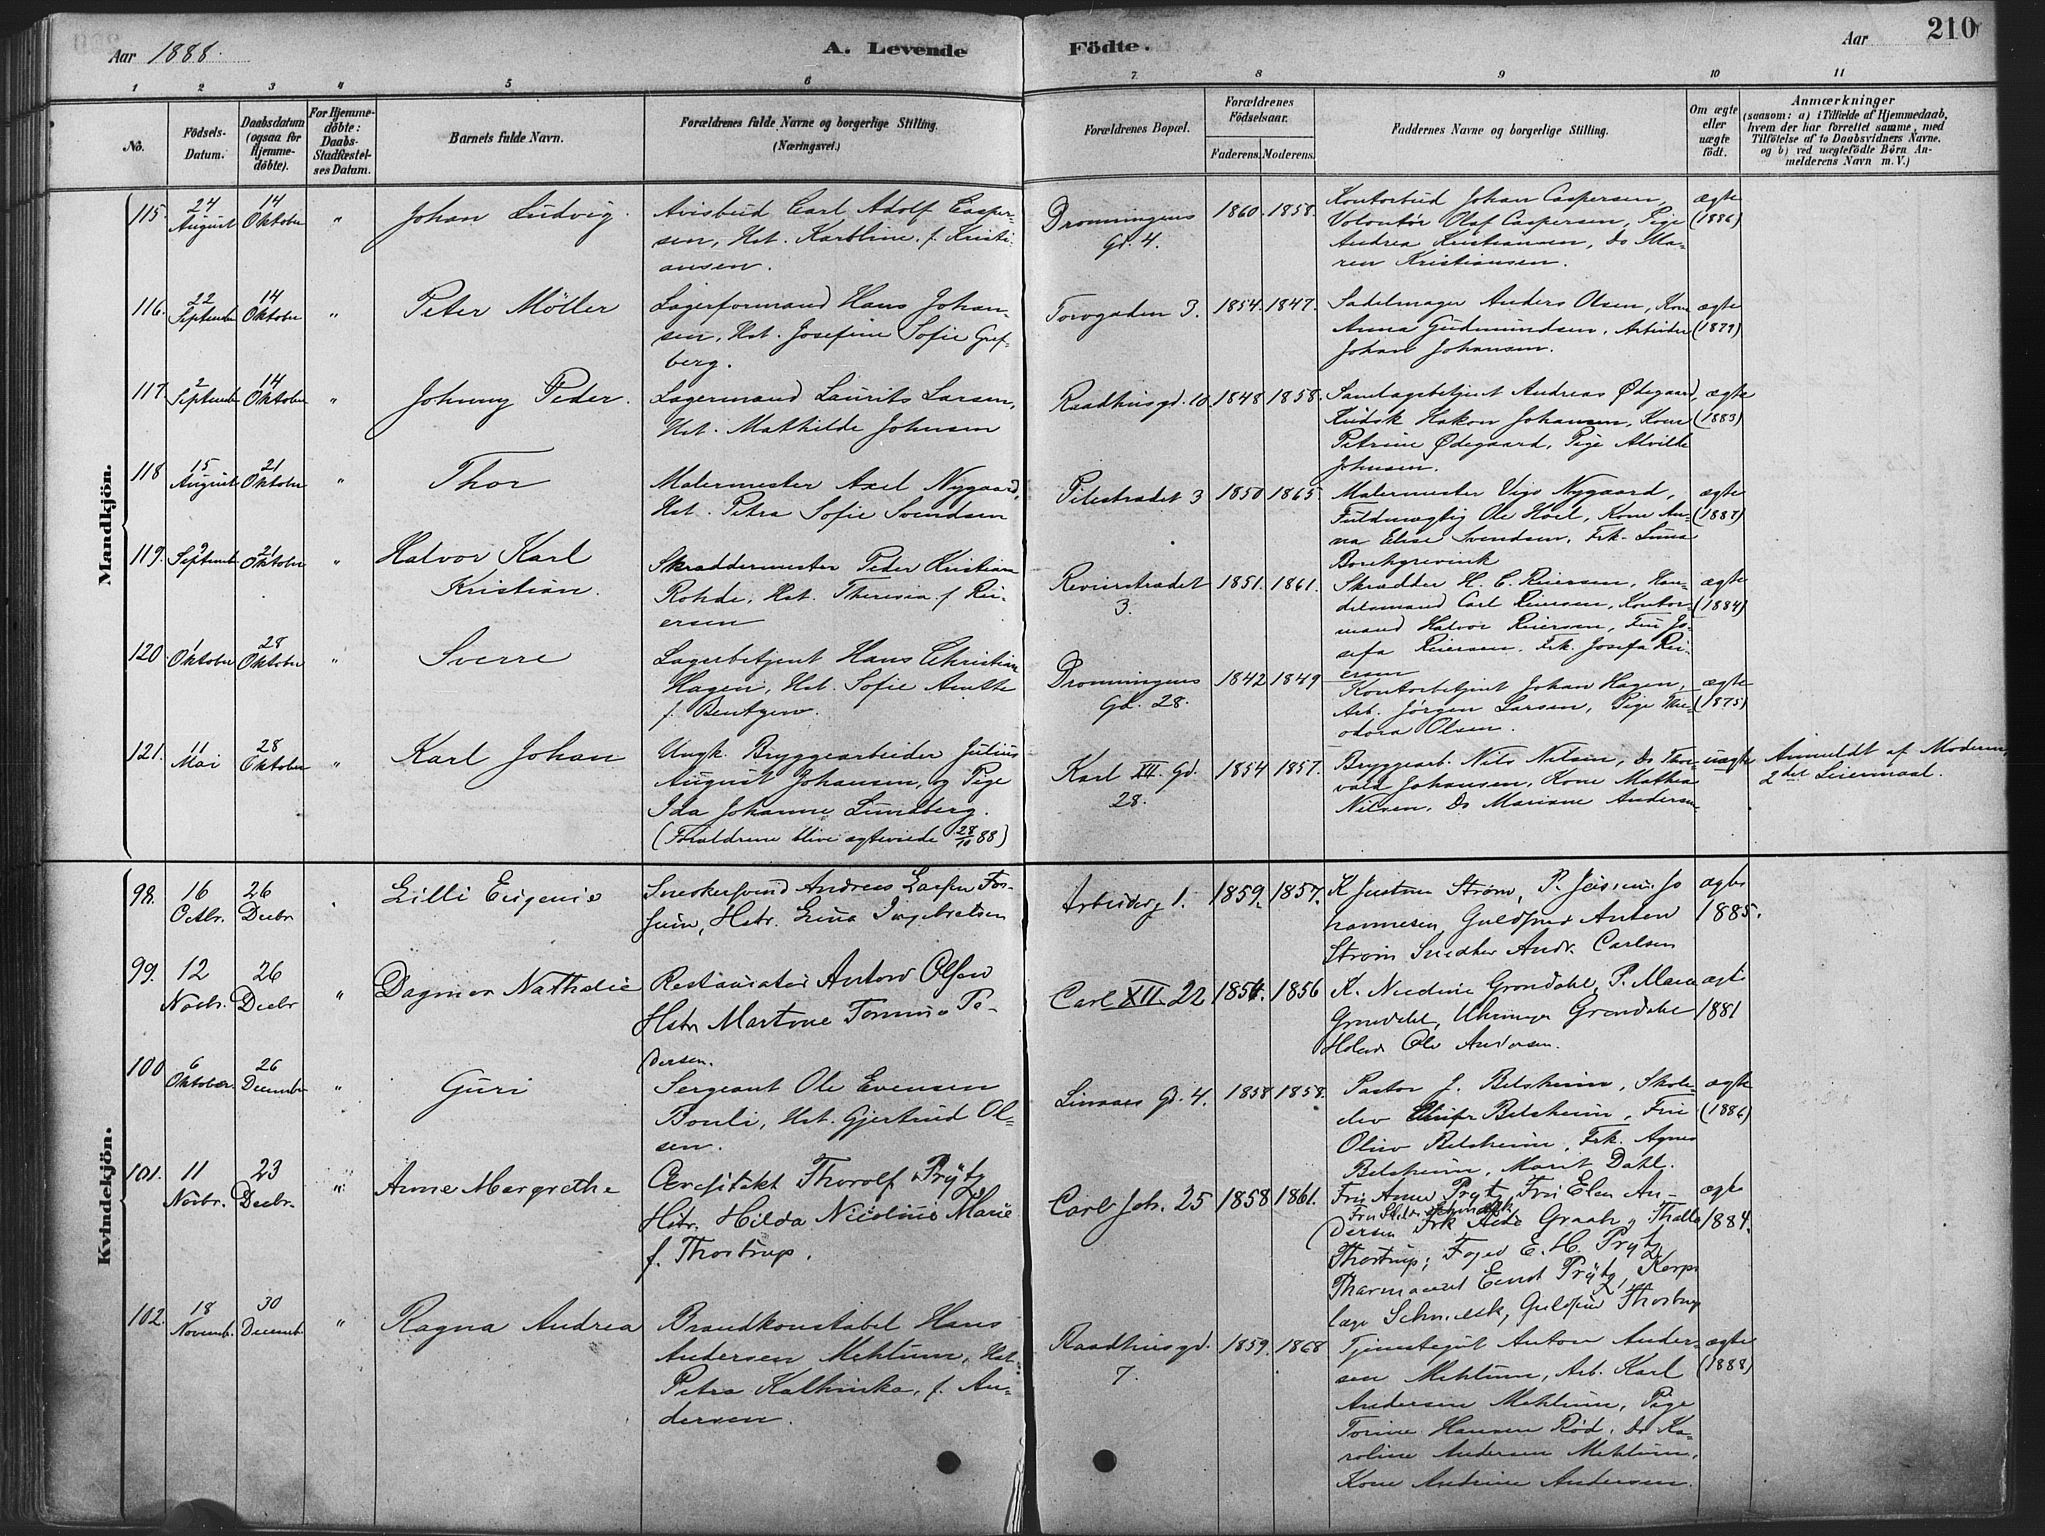 210
Aar 1888.
A. Levende Födte.
Aar
1 2 3 4 5 6 7 8 9 10 11
No.
Födsels-
Datum.
Daabsdatum
(ogsaa for
Hjemme-
døbte).
For Hjemme-
döbte:
Daabs-
Stadfæstel-
ses Datum.
Barnets fulde Navn.
Forældrenes fulde Navne og borgerlige Stilling.
(Næringsvei.)
Forældrenes Bopæl.
Forældrenes
Födselsaar.
Faderens. Moderens.
Faddernes Navne og borgerlige Stilling.
Om ægte
eller
uægte
födt.
Anmærkninger
(saasom: a) i Tilfælde af Hjemmedaab,
hvem der har forrettet samme, med
Tilföielse af to Daabsvidners Navne,
og b) ved uægtefödte Börn An-
melderens Navn m. V.)
Mandkjön.
115. 24 August 14 Oktober " Johan Ludvig.
Avisbud Carl Adolf Casper-
sen, Hst. Karoline f. Kristi-
ansen.
Dronningens
Gd. 4.
1860. 1858.
Kontorbud Johan Caspersen,
Volontør Olaf Caspersen, Pige
Andrea Kristiansen, Do Ma-
ren Kristiansen.
ægte
(1886)
116. 22 September 14 Oktober " Peter Möller
Lagerformand Hans Johan-
sen, Hst. Josefine Sofie Gref-
berg.
Torvgaden 3.
1854. 1847.
Sadelmager Anders Olsen, Kone
Anna Gudmundsen, Arbeider
Johan Johansen.
ægte
(1879)
117. 2 September 14 Oktober " Johnny Peder.
Lagermand Laurits Larsen,
Hst. Mathilde Johnsen
Raadhusgd. 10.
1848 1858.
Samlagsbetjent Andreas Ødegaard,
Kudsk Hakon Johansen, Kone
Petrine Ødegaard, Pige Alvilde
Johnsen.
ægte
(1883)
118 15 August 21 Oktober " Thor
Malermester Axel Nygaard,
Hst. Petra Sofie Svendsen
Pilestrædet 3
1850 1865.
Malermester Vigo Nygaard,
Fuldmægtig Ole Hoel, Kone An-
na Elise Svendsen, Frk.
Borchgrevink
ægte
119. 9 September 21 Oktober " Halvor Karl
Kristian.
Skræddermester Peder Kristian
Rohde, Hst. Theresia f. Rei-
ersen
3.
1851. 1861.
Skrædder H. C. Reiersen, Han-
delsmand Carl Reiersen, Kontor-
mand Halvor Reiersen, Fru Jo-
sefa Reiersen. Frk. Josefa Rei-
ersen
ægte
(1884)
120. 1 Oktober 28 Oktober " Sverre
Lagerbetjent Hans Christian
Hagen, Hst. Sofie Anette
f. Bentzen.
Dronningens
Gd. 28.
1842 1849
Kontorbetjent Johan Hagen,
Arb. Jörgen Larsen, Pige The-
odora Olsen.
ægte
(1875)
121. 11 Mai 28 Oktober " Karl Johan
Ungk. Bryggearbeider Julius
August Johansen, og Pige
Ida Johanne Lundberg.
(Forældrene blive ægteviede 28/10 88)
Karl XII. Gd.
28.
1854 1857.
Bryggearb. Nils Nilsen, Do Thor-
vald Johansen, Kone Mathea
Nilsen, Do Mariane Andersen
uægte
Anmeldt af Moderen,
2det Leiermaal.
Kvindekjön.
98. 16 Octbr. 26 Decbr Lilli Eugenie
Snedkersvend Andreas Larsen Fos-
sum, Hstr. Lina Ingebretsen
Arbiderg 1.
1859. 1857.
K Justine Strøm, P. Jo
hannesen, Guldsmed Anton
Strøm Snedker Andr. Carlsen
ægte
1885.
99. 12 Novbr. 26 Decbr " Dagmar Nathalie
Restauratør Anton Olsen
Hstr Martine Pe-
dersen.
Carl XII 22
1854. 1856
K. Grøndahl, P. Maren
Grøndahl, Uhrmager Grøndahl
Ole Andersen.
ægte
1881
100 6 Oktober 26 December " Guri
Sergeant Ole Evensen
Bonli, Hst. Gjertrud Ol-
sen.
Linaaes Gd. 4.
1858 1858.
Pastor J. Belsheim, Skole-
elev Einar Belsheim, Fru
Oliva Belsheim, Frk. Agnes
Belsheim, Marit Dahl.
ægte
(1886)
101. 11 Novbr. 23 Decbr. " Anne Margrethe
Arkitekt Thorolf Prÿtz
Hstr. Hilda Nicoline Marie
f. Thostrup.
Carl Joh. 25
1858 1861.
Fru Anna Prytz, Fru Elen An-
dersen Frk Graah, Thalla
Thostrup, Foged E. H. Prytz
Pharmaceut Ernst Prÿtz, Korps
læge Schmelck, Guldsmed Thostrup
ægte
1884.
102. 18 Novemb. 30 Decemb. " Ragna Andrea
Brandkonstabel Hans
Andersen Mehlum, Hst.
Petra Kathinka, f. An-
dersen.
Raadhusgd.
7.
1859. 1868
Tjenestegut Anton Ander-
sen Mehlum, Arb. Karl
Andersen Mehlum, Pige
Torine Hansen Rød, Do Ka-
roline Andersen Mehlum,
Kone Andrine Andersen.
ægte
(1888)